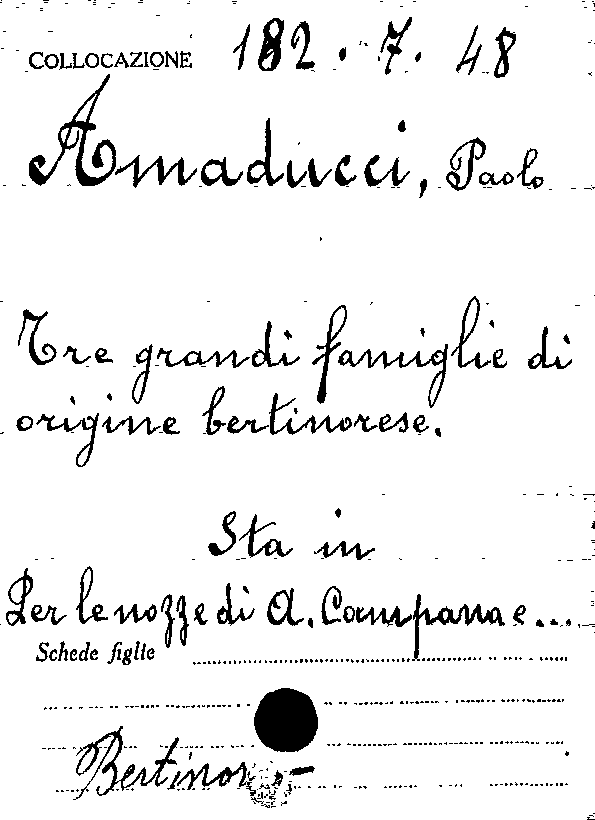 COLLOCAZIONE 182.7.48
Amaducci, Paolo
Tre grandi famiglie di
origine bertinorese.
Sta in
Per le nozze di A. Campana e...
Schede figlie
Bertinoro -